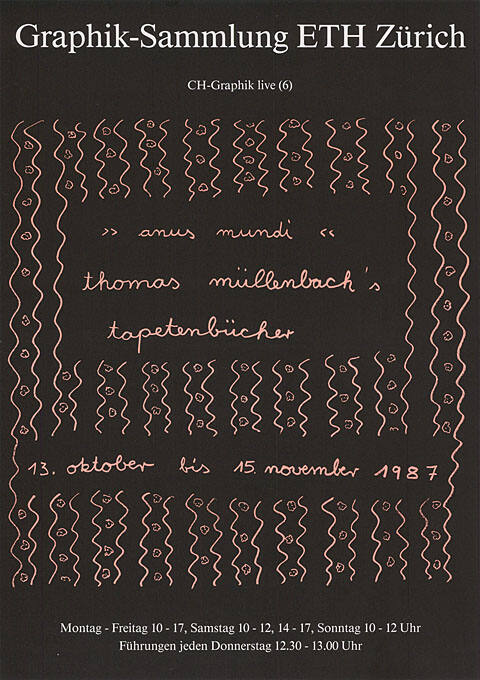 Graphik-Sammlung ETH Zürich
CH-Graphik live (6)
» anus mundi «
thomas müllenbach's
tapetenbücher
13. oktober bis 15. november 1987
Montag - Freitag 10 - 17, Samstag 10 - 12, 14 - 17, Sonntag 10 - 12 Uhr
Führungen jeden Donnerstag 12.30 - 13.00 Uhr